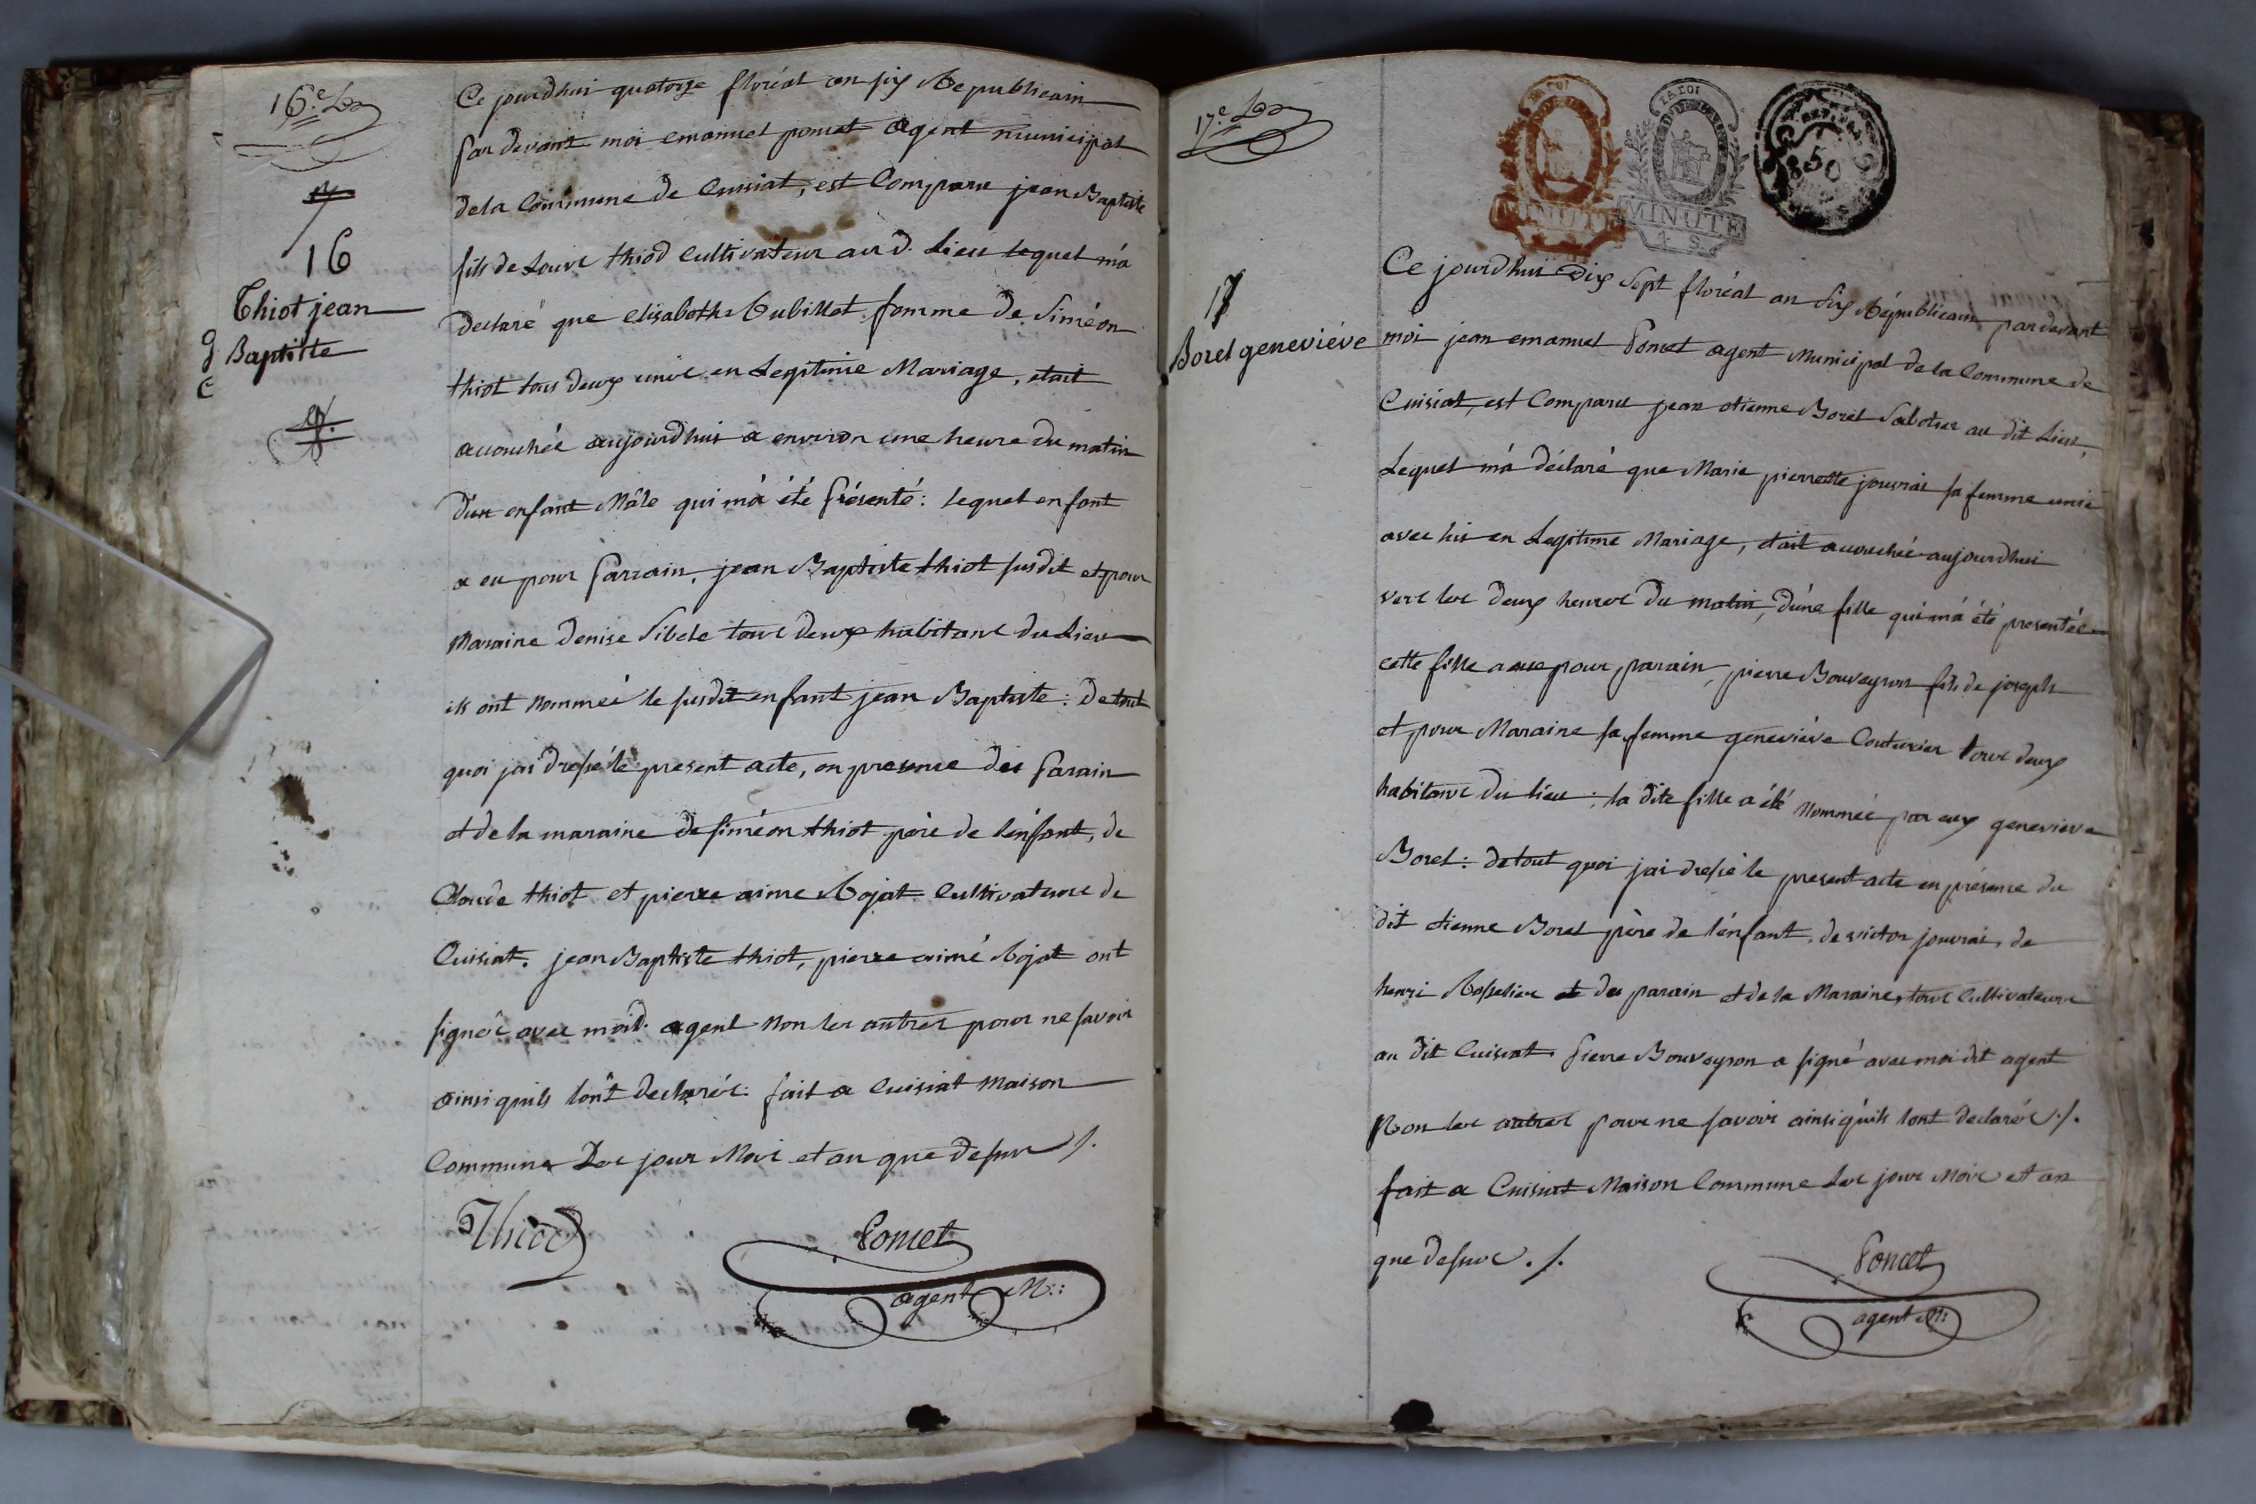 16.e
16
Thiot jean
Baptiste
Ce jourdhui quatorze floréal an six Republicain
par devant moi emanuel poncet agent municipal
dela Commune de Cuisiat, est Comparu jean Baptiste
fils de Louis thiod Cultivateur au d. Lieu lequel m'a
declaré que elisabeth Rubillot femme de Siméon
thiot tous deux unis en Legitime Mariage, etait
accouchée aujourdhui a environ une heure du matin
d'un enfant Mâle qui m'a été présenté : lequel enfant
a eu pour parrain, jean Baptiste thiot susdit et pour
Maraine denise Sibele tous deux habitans du Lieu
ils ont nommé le susdit enfant jean Baptiste : de tout
quoi jai dressé le present acte, en presence des parain
et de la maraine de siméon thiot pére de l'enfant, de
Claude thiot et pierre aimé Rojat Cultivateurs de
Cuisiat. jean Baptiste thiot, pierre aimé Rojat ont
signés avec moid. agent non les autres pour ne savoir
ainsi quils lont declarés : fait a Cuisiat maison
Commune Les jour Mois et an que dessus ./.
Thiod
Poncet
agent M.
17.e
17
Borel geneviéve
LA LOI
LA LOI
MINUTE
4 S.
50
Ce jourdhui dix sept floréal an six Républicain pardevant
moi jean emanuel Poncet agent Municipal de la Commune de
Cuisiat, est Comparu jean etienne Borel Sabotier au dit Lieu,
Lequel m'a déclaré que Marie pierrette jouvrai sa femme unie
avec lui en Legitime Mariage, était accouchée aujourdhui
vers les deux heures du matin, d'une fille qui m'a été presentée
cette fille a eue pour parain, pierre Bouveyron fils de joseph
et pour Maraine sa femme geneviéve Couturier tous deux
habitans du lieu ; la dite fille a été nommée par eux genevieve
Borel : de tout quoi jai dressé le present acte en présence du
dit etienne Borel père de l'enfant, de victor jouvrai, de
henri Rosselier et des parain et de la Maraine, tous Cultivateurs
au dit Cuisiat. Pierre Bouveyron a signé avec moi dit agent
Non les autres pour ne savoir ainsi qu'ils lont declarés ./.
fait a Cuisiat Maison Commune Les jour Mois et an
que dessus ./.
Poncet
agent M.